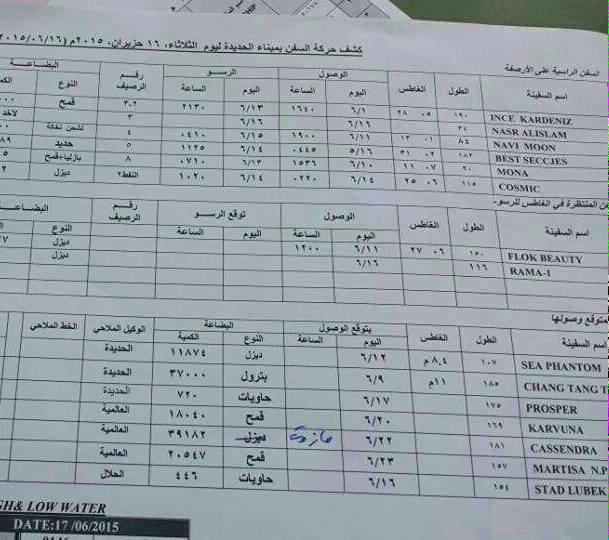 كشف حركة السفن بميناء الحديدة ليوم الثلاثاء، ١٦ حزيران، ٢٠١٥م (٢٠١٥/٠٦/١٦
السفن الراسية على الأرصفة
اسم السفينة الطول الغاطس الوصول الرسو رقم الرصيف البضاعة
اليوم الساعة اليوم الساعة النوع الكمية
INCE KARDENIZ ١٩٠ ٠٥ ٢٨ ٦/١ ١٦٤٠ ٦/١٣ ٢١٣٠ ٢-٣ قمح
NASR ALISLAM ٣٤ ٦/١٦ ٦/١٦ ٣
NAVI MOON ٨٤ ٠١ ١٣ ٦/١١ ١٩٠٠ ٦/١٥ ٠٤١٠ ٤ لشحن نخالة
BEST SECCJES ١٨٢ ٠٢ ٣١ ٥/١٦ ٠٤٤٥ ٦/١٤ ١١٢٥ ٥ حديد
MONA ٦٠ ٠٧ ١١ ٦/١٠ ١٥٣٦ ٦/١٣ ٠٧١٠ ٨ بازليا+قمح
COSMIC ١١٥ ٠٦ ٢٥ ٦/١٤ ٠٢٢٠ ٦/١٤ ١٠٢٠ النفط٢ ديزل
المنتظرة في الغاطس للرسو-
اسم السفينة الطول الغاطس الوصول توقع الرسو رقم الرصيف البضاعة
اليوم الساعة اليوم الساعة النوع
FLOK BEAUTY ١٥٠ ٠٦ ٢٧ ٦/١١ ١٢٠٠ ديزل
RAMA-1 ١١٦ ٦/١٦ ديزل
متوقع وصولها
اسم السفينة الطول الغاطس يتوقع الوصول البضاعة الوكيل الملاحي الخط الملاحي
اليوم الساعة النوع الكمية
SEA PHANTOM ١٠٧ ٨,٤م ٦/١٢ ديزل ١١٨٧٤ الحديدة
CHANG TANG T ١٨٥ ١١م ٦/٩ بترول ٣٧٠٠٠ الحديدة
PROSPER ١٧٥ ٦/١٧ حاويات ٧٢٠ الحديدة
KARVUNA ١٦٩ ٦/٢٠ قمح ١٨٠٤٠ العالمية
CASSENDRA ١٨١ ٦/٢٢ ديزل ٣٩١٨٢ العالمية
MARTISA N.P ١٥٧ ٦/٢٣ قمح ٢٠٥٤٧ العالمية
STAD LUBEK ١٥٤ ٦/١٦ حاويات ٤٤٦ الحلال
GH& LOW WATER
DATE:17 /06/2015